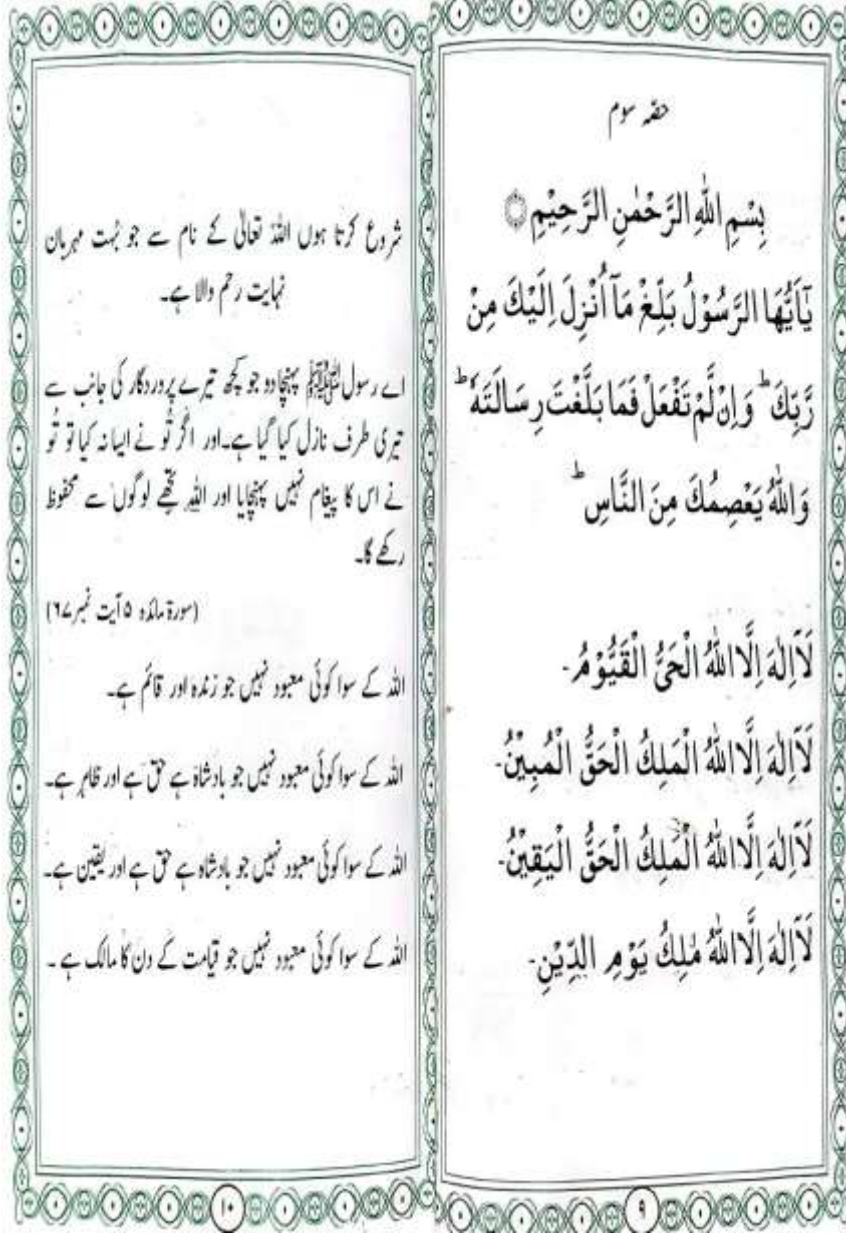 حصّہ سوم
بِسْمِ اللّٰهِ الرَّحْمٰنِ الرَّحِيْمِ ۝
يٰٓاَيُّهَا الرَّسُوْلُ بَلِّغْ مَآ اُنْزِلَ اِلَيْكَ مِنْ
رَّبِّكَ ؕ وَاِنْ لَّمْ تَفْعَلْ فَمَا بَلَّغْتَ رِسَالَتَهٗ ؕ
وَاللّٰهُ يَعْصِمُكَ مِنَ النَّاسِ ؕ
لَآ اِلٰهَ اِلَّا اللّٰهُ الْحَیُّ الْقَيُّوْمُ۔
لَآ اِلٰهَ اِلَّا اللّٰهُ الْمَلِكُ الْحَقُّ الْمُبِيْنُ۔
لَآ اِلٰهَ اِلَّا اللّٰهُ الْمَلِكُ الْحَقُّ الْيَقِيْنُ۔
لَآ اِلٰهَ اِلَّا اللّٰهُ مٰلِكُ يَوْمِ الدِّيْنِ۔
۹
شروع کرتا ہوں اللہ تعالیٰ کے نام سے جو بُہت مہربان
نہایت رحم والا ہے۔
اے رسول ﷺ پہنچادو جو کچھ تیرے پروردگار کی جانب سے
تیری طرف نازل کیا گیا ہے۔اور اگر تُو نے ایسا نہ کیا تو تُو
نے اس کا پیغام نہیں پہنچایا اور اللہ تجھے لوگوں سے محفوظ
رکھے گا۔
(سورۃ مائدہ ۵ آیت نمبر ۶۷)
اللہ کے سوا کوئی معبود نہیں جو زندہ اور قائم ہے۔
اللہ کے سوا کوئی معبود نہیں جو بادشاہ ہے حق ہے اور ظاہر ہے۔
اللہ کے سوا کوئی معبود نہیں جو بادشاہ ہے حق ہے اور یقین ہے۔
اللہ کے سوا کوئی معبود نہیں جو قیامت کے دن کا مالک ہے ۔
۱۰